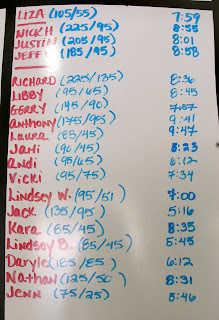 LIZA (105/55) 7:59
NICK H (225/95) 8:55
JUSTIN (205/95) 8:01
JEFF (185/95) 8:58
RICHARD (225/135) 8:36
LIBBY (95/65) 8:45
GERRY (145/90) 7:57
Anthony (175/95) 9:41
Laura (85/45) 9:47
Jati (90/45) 8:23
andi (95/65) 6:12
Vicki (95/75) 7:34
Lindsey W. (95/51) 7:00
Jack (135/95) 5:16
Kara (85/45) 8:35
Lindsay B. (85/45) 5:45
Daryle (185/85) 6:12
Nathan (125/50) 8:31
Jenn (75/25) 5:46